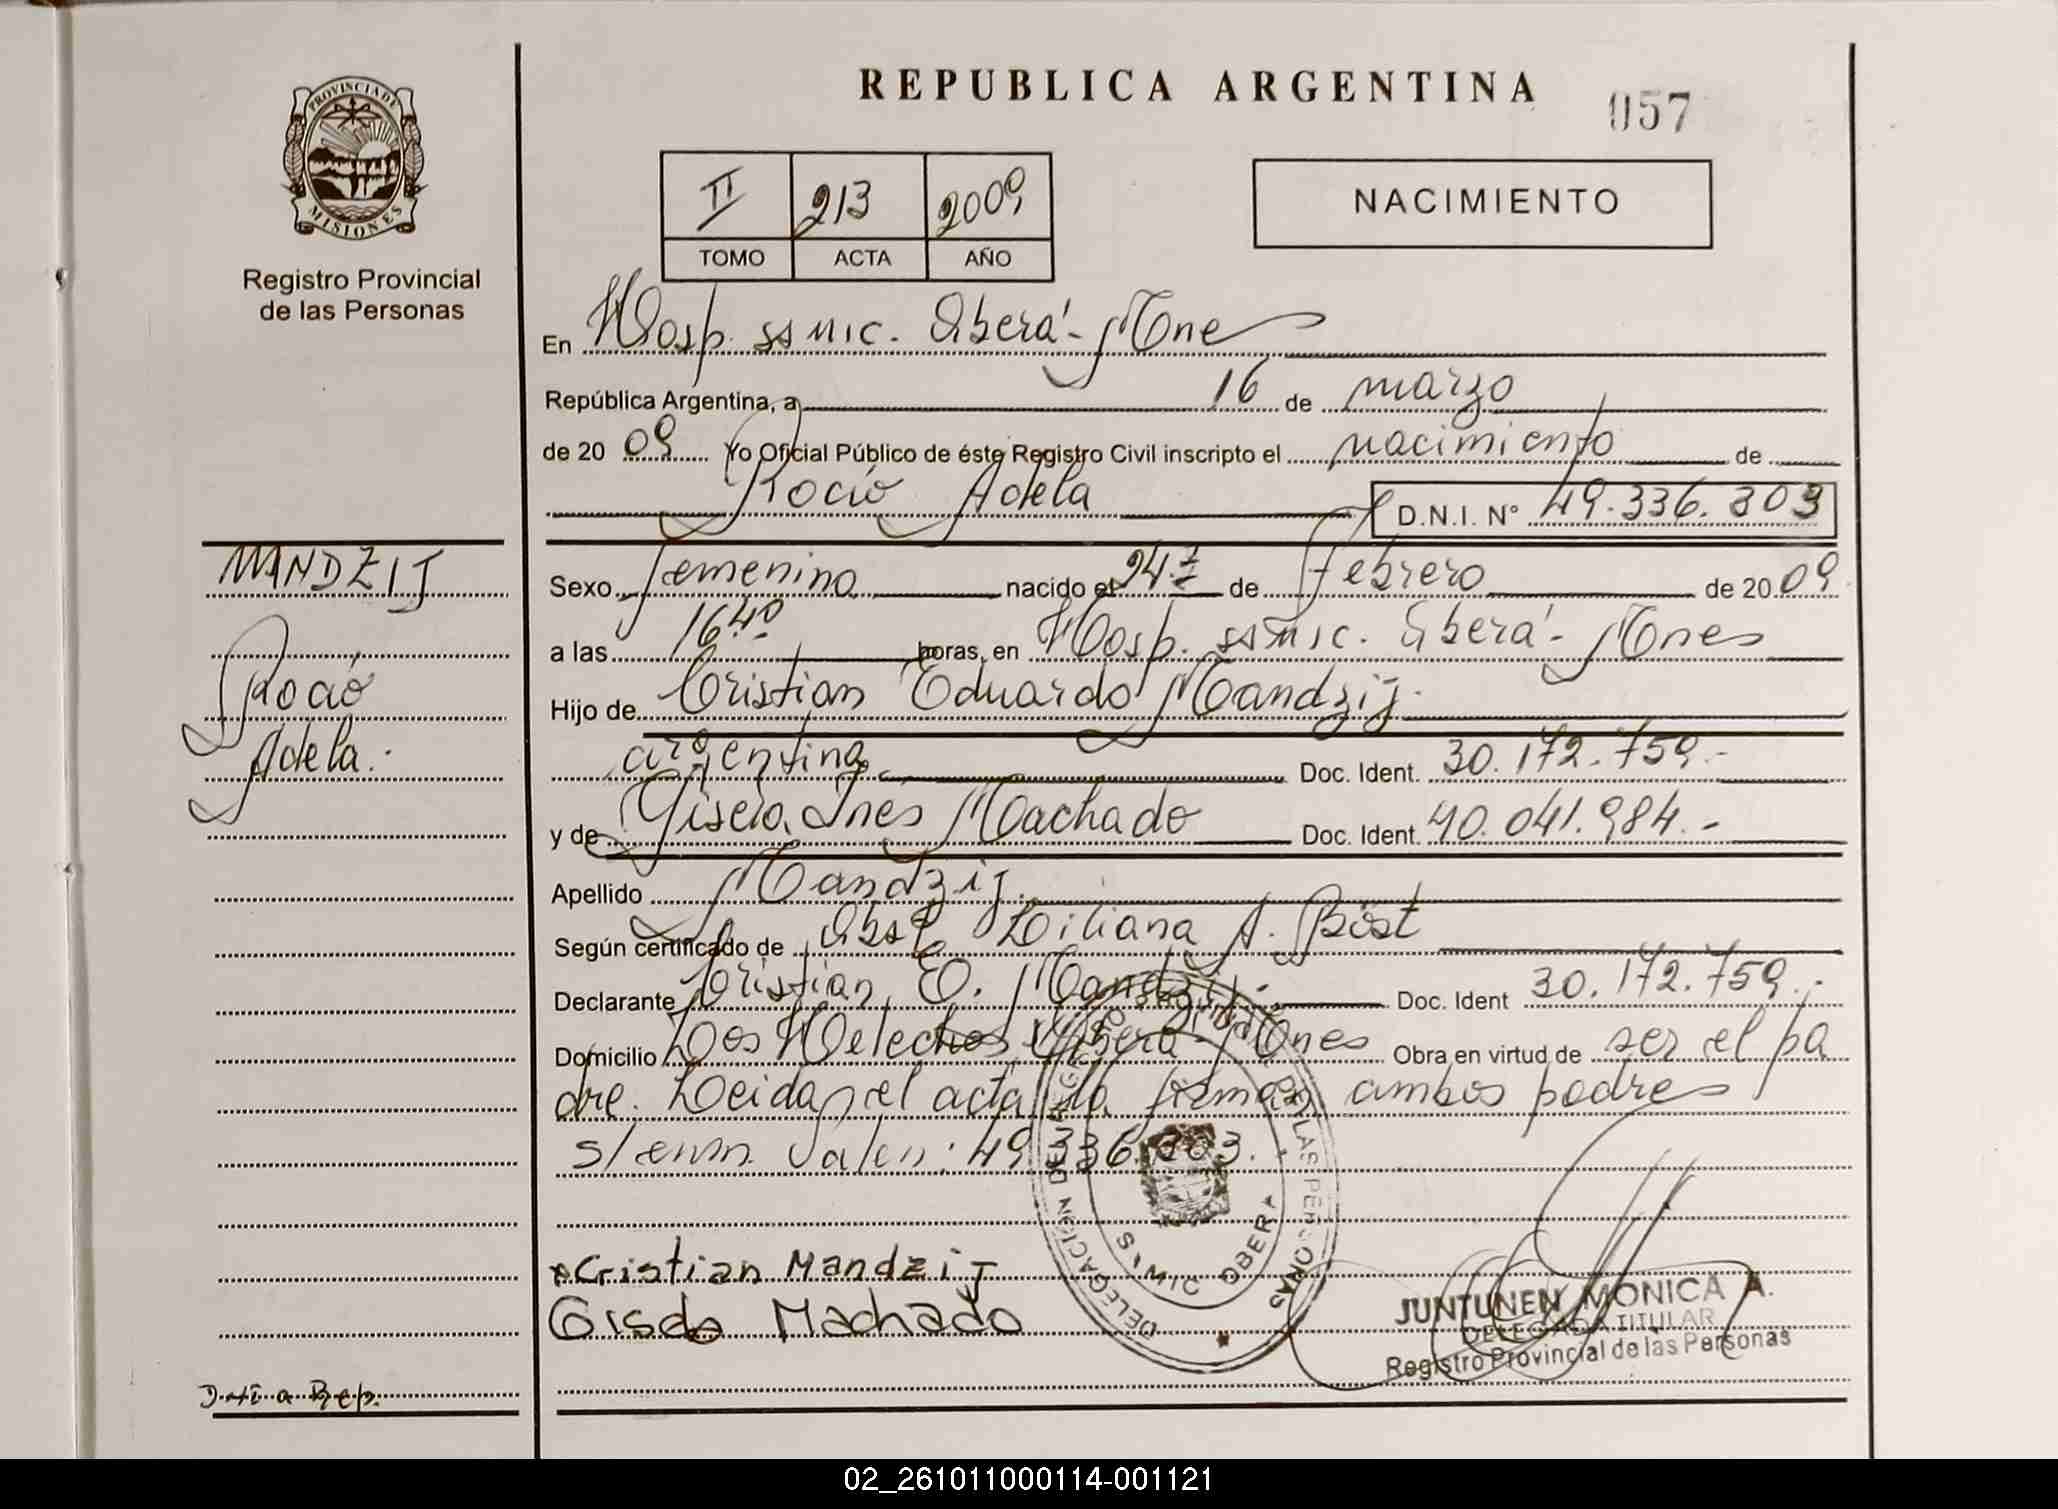 REPUBLICA ARGENTINA
057
PROVINCIA DE
MISIONES
Registro Provincial
de las Personas
II 213 2009
TOMO ACTA AÑO
NACIMIENTO
En Hosp. SSMIC. Oberá - Mnes
República Argentina, a 16 de marzo
de 20 09 Yo Oficial Público de éste Registro Civil inscripto el nacimiento de
Rocío Adela D.N.I. N° 49.336.303
MANDZIJ
Rocío
Adela.
Sexo femenino nacido el 24 de febrero de 20 09
a las 16:40 horas, en Hosp. SSMIC. Oberá - Mnes
Hijo de Cristian Eduardo Mandzij.
argentina Doc. Ident. 30.172.759.-
y de Gisela Inés Machado Doc. Ident. 40.041.984.-
Apellido Mandzij.
Según certificado de Obst. Liliana A. Böst
Declarante Cristian E. Mandzij.- Doc. Ident 30.172.759.-
Domicilio Los Helechos Oberá - Mnes Obra en virtud de ser el pa
dre. Leida el acta la firman ambos padres
s/enm Valen: 49.336.303.
Cristian Mandzij
Gisela Machado
DELEGACIÓN DE LAS PERSONAS
OBERA
JUNTUNEN MONICA A.
DELEGADA TITULAR
Registro Provincial de las Personas
02_261011000114-001121